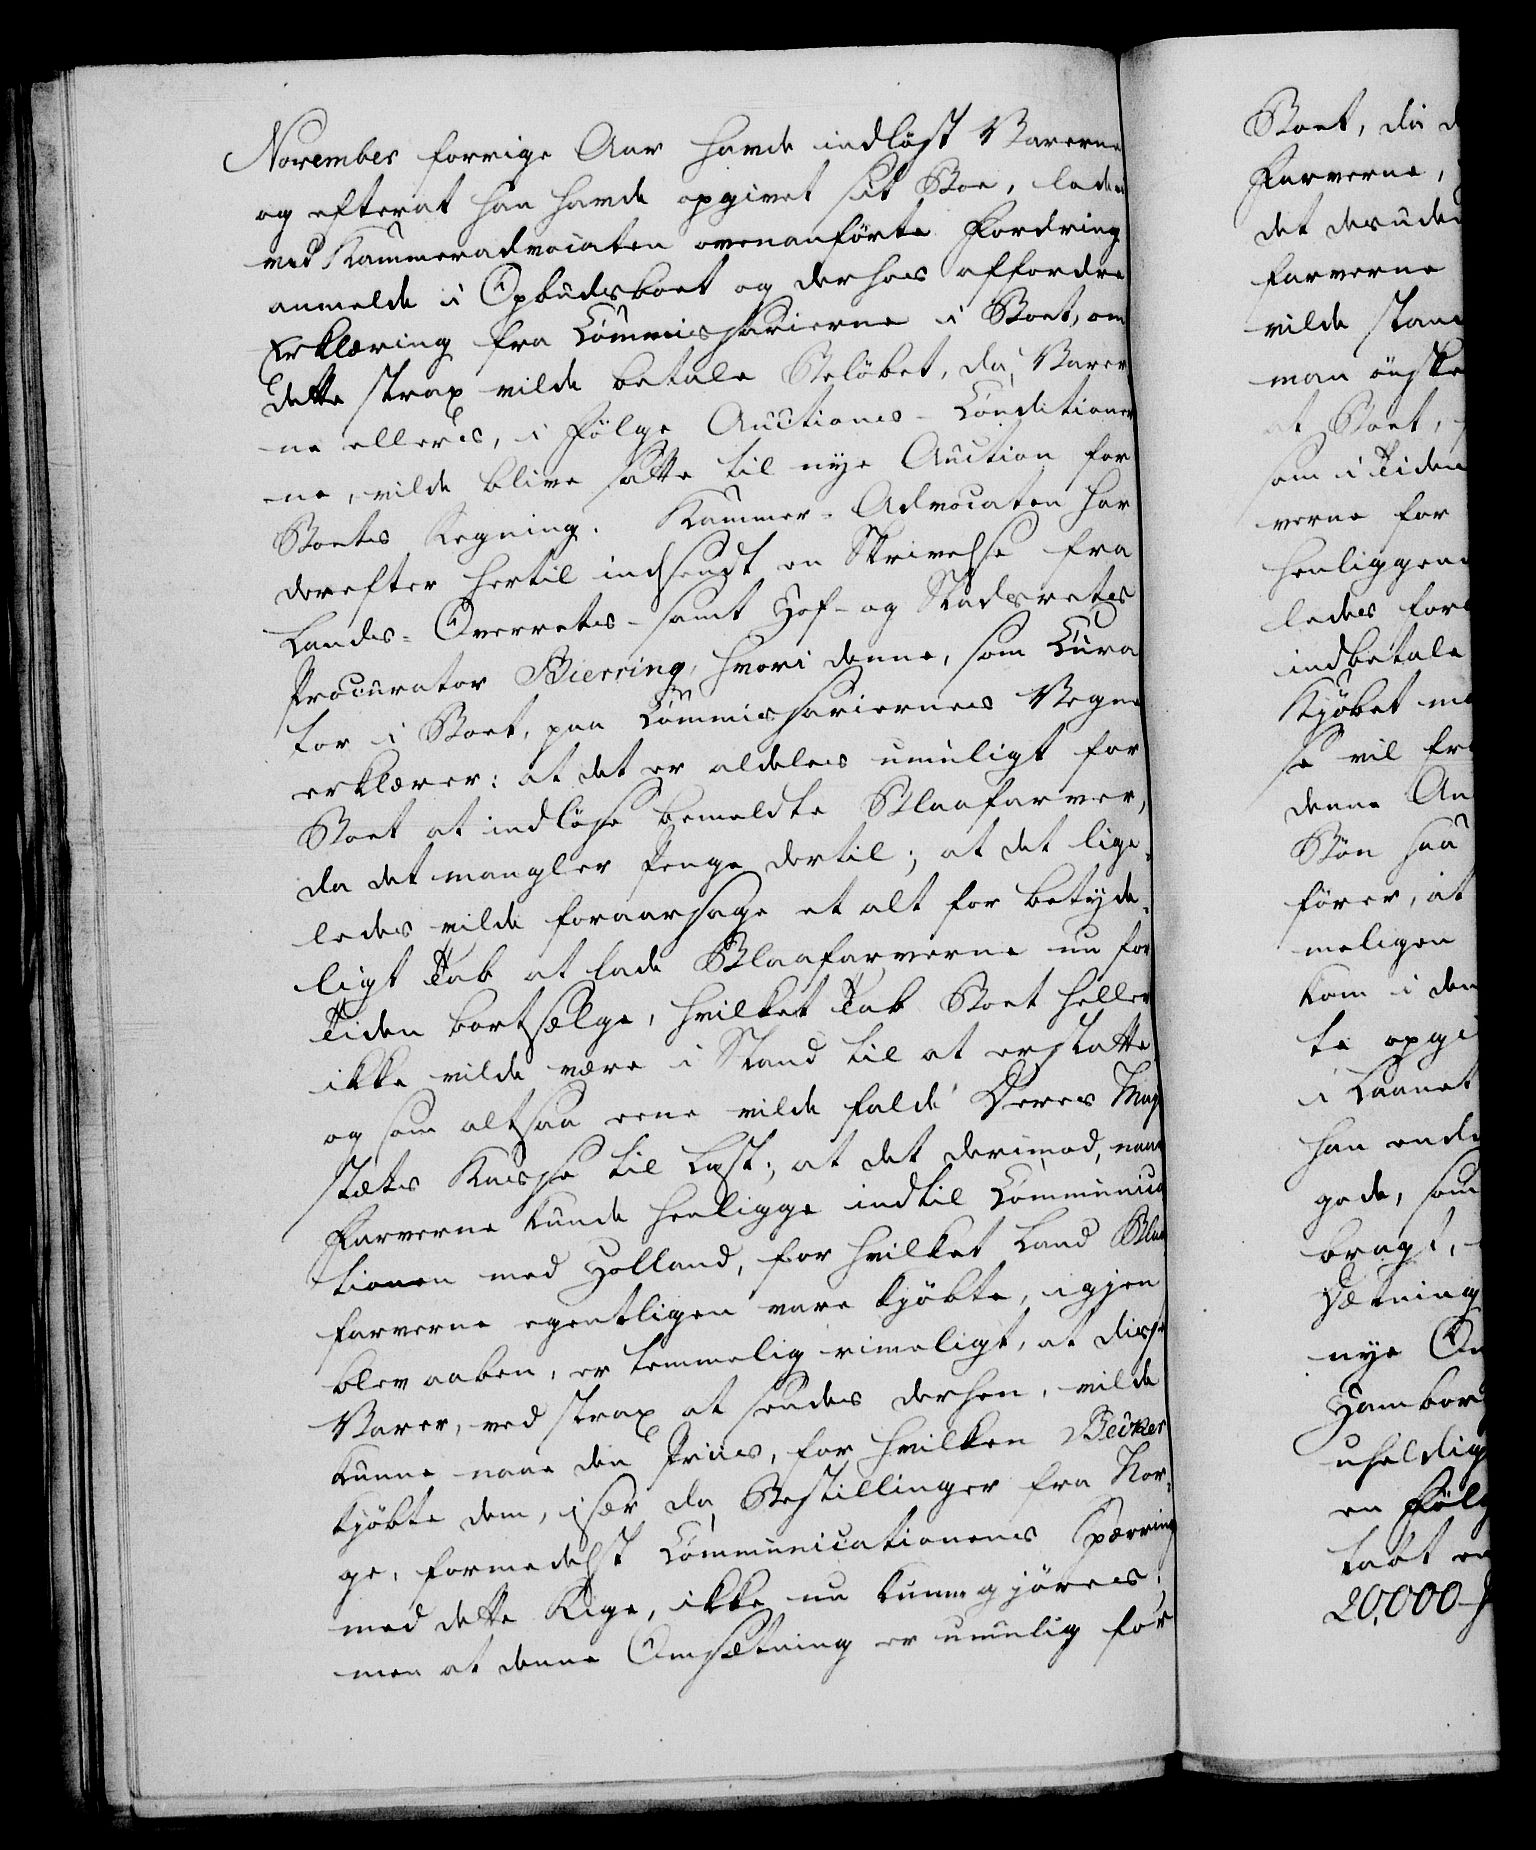 November forrige Aar havde indløst Varerne
og efterat han havde opgivet sit Boe, lod
ved Kammeradvocaten ovenanførte Fordring
anmelde i Opbudsboet og derhos affordre
Erklæring fra Commissarierne i Boet, om
dette strax vilde betale Beløbet, da Varer
ne ellers, i Følge Auctions-Conditioner
ne, vilde blive satte til nye Auction for
Boets Regning. Kammer-Advocaten har
derefter hertil indsendt en Skrivelse fra
Lands-Overrets- samt Hof- og Stadsrets
Procurator Bierring, hvori denne, som Cura
tor i Boet, paa Commissariernes Vegne
erklærer: at det er aldeles umuligt for
Boet at indløse bemeldte Blaafarver,
da det mangler Penge dertil; at det lige-
ledes vilde foraarsage et alt for betyde-
ligt Tab at lade Blaafarverne nu for
Tiden bortsælge, hvilket Tab Boet heller
ikke vilde være i Stand til at erstatte
og som altsaa eene vilde falde Deres Maje
stæts Kasse til Last; at det derimod, naar
Farverne kunde henligge indtil Communica
tionen med Holland, for hvilket Land Blaa
farverne egentligen vare kjøbte, igjen
blev aaben, er temmelig rimeligt, at disse
Varer, ved strax at sendes derhen, vilde
kunne naae den Priis, for hvilken Becker
kjøbte dem, især da Bestillinger fra Nor-
ge, formedelst Communicationens Spærring
med dette Rige, ikke nu kunne gjøres;
men at denne Omsætning er umulig for
Boet, da
Farverne,
det desuden
Farverne
vilde
man ønske
at Boet,
som i Tiden
verne for
henliggen
ledes for
indbetale
Kjøbet
se vil
denne An
Bøn saa
fører, at
meligen
kom i den
te opgi
i Laanet
han ende
gode, som
bragt,
sætning
nye
Hambor
uheldig
en Følg
tabt
20,000